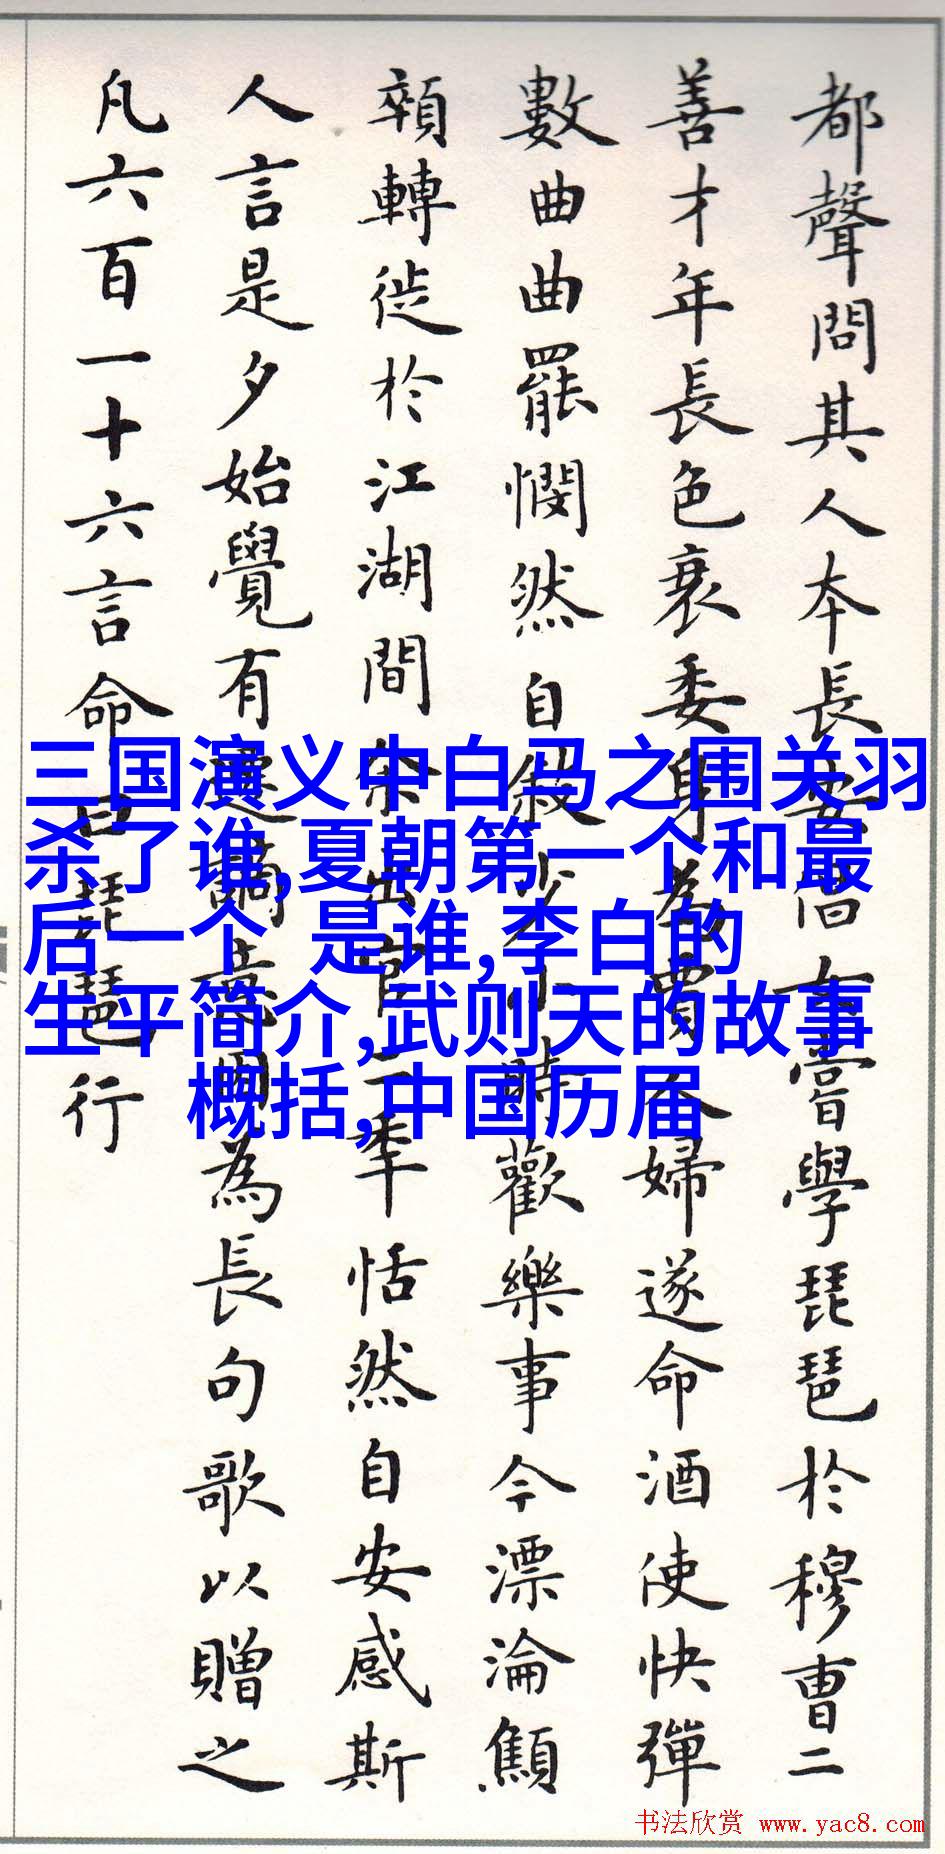 都聲問其人本長安倡女嘗學琵琶於穆曹二
善才年長色衰委身為賈人婦遂命酒使快彈
數曲曲罷憫然自敘少小時歡樂事今漂淪顦
顇轉徙於江湖間余出官二秊恬然自安感斯
人言是夕始覺有遷謫意因為長句歌以贈之
凡六百一十六言命曰琵琶行
三国演义中白马之围关羽
杀了谁,夏朝第一个和最
后一个 是谁,李白的
生平简介,武则天的故事
概括,中国历届
书法欣赏 www.yac8.com